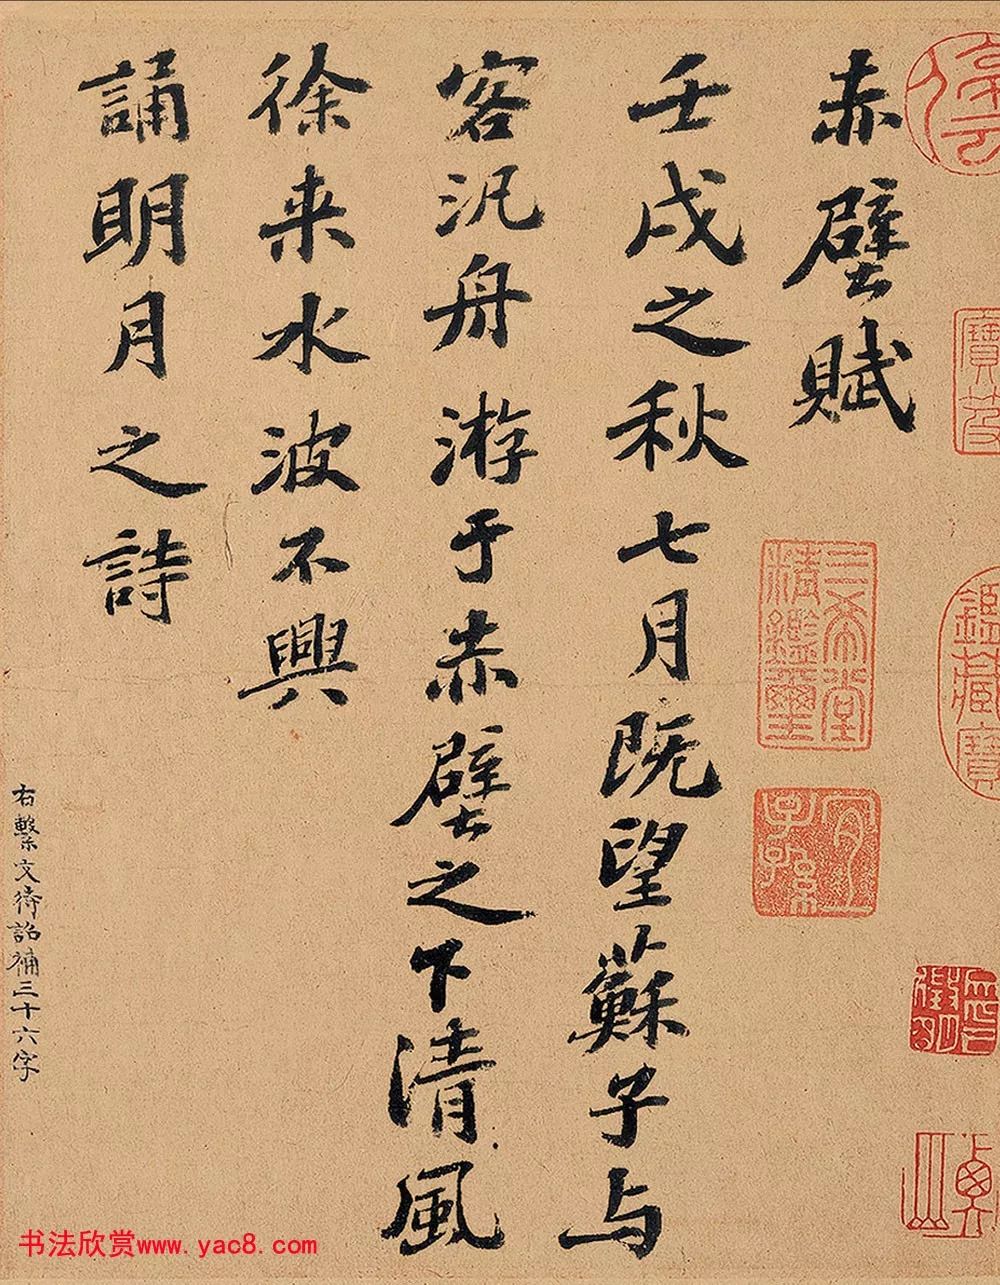 赤壁賦
壬戌之秋七月既望蘇子与
客汎舟游于赤壁之下清風
徐来水波不興
誦明月之詩
右繫文待詔補三十六字
三希堂
精鑑璽
宜
子孫
鑑藏寶
书法欣赏www.yac8.com